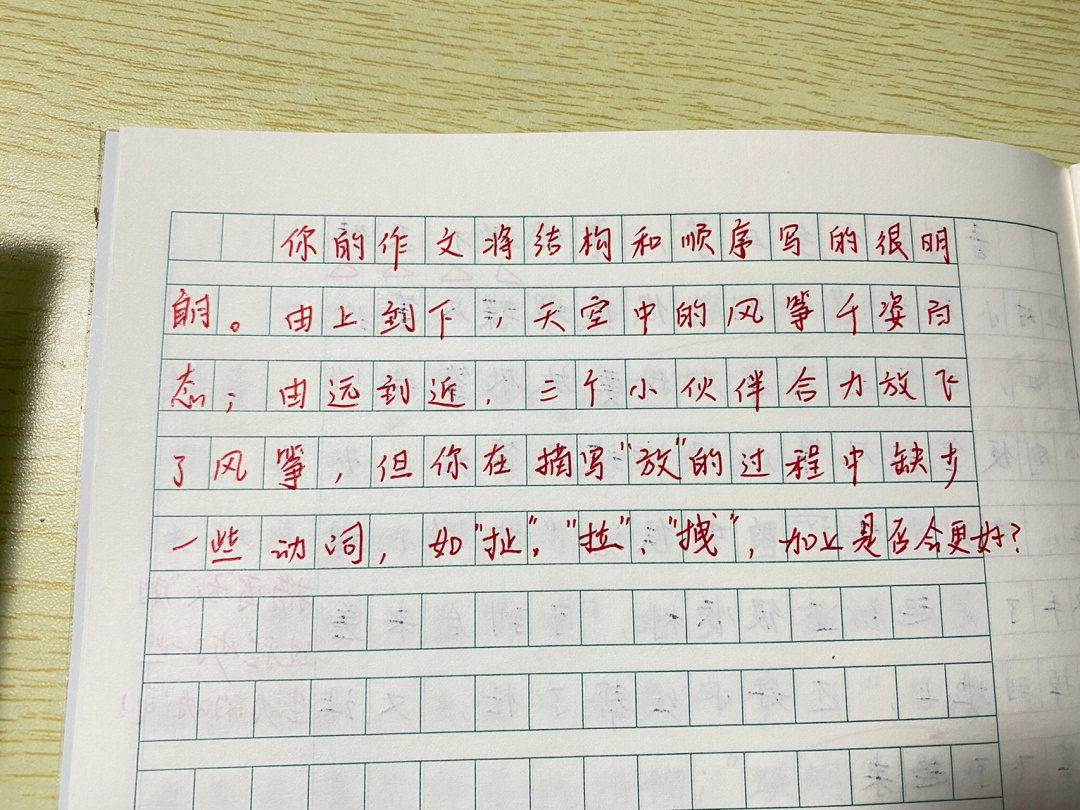 你的作文将结构和顺序写的很明
朗。由上到下,天空中的风筝千姿百
态;由远到近,三个小伙伴合力放飞
了风筝,但你在描写"放"的过程中缺少
一些动词,如"扯"、"拉"、"拽",加上是否会更好?